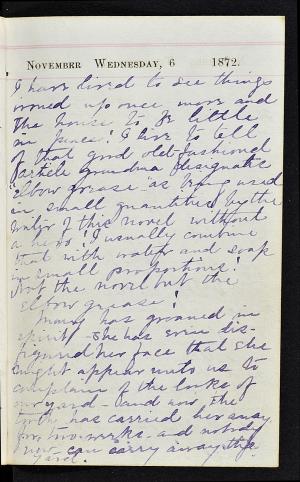 NOVEMBER WEDNESDAY, 6 1872.
I have lived to see things
once more and
the house to be little
in peace! I live to tell
of that good old-fashioned
article grandma designates
"Elbow grease" as being used
in small quantities by the
writer of this novel without
a hero! I usually combine
that with water and soap
in small proportions!
Not the novel but the
elbow grease!
has groaned in
spirit - she has even dis-
figured her face that she
might appear unto us to
complain of the looks of
our yard - and now the
has carried her away
for two weeks - and nobody
now can carry away the
yard.